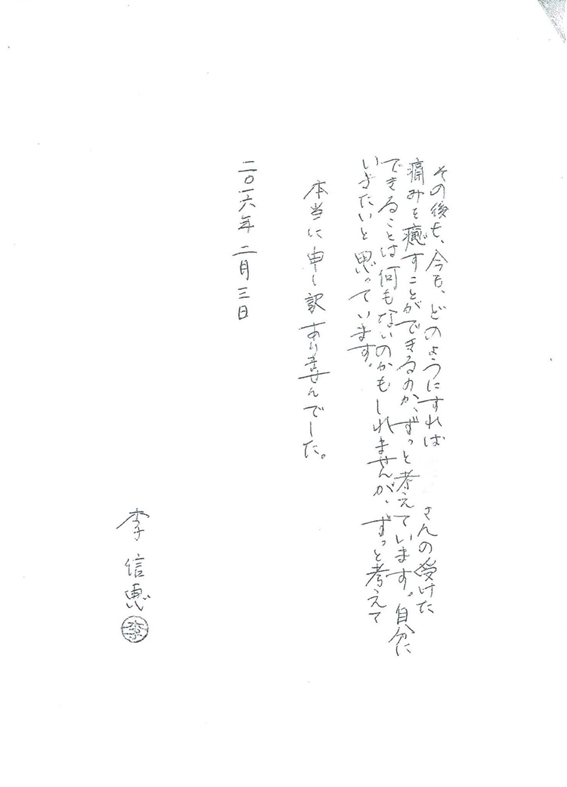 その後も、今も、どのようにすれば　　　さんの受けた
痛みを癒すことができるのか、ずっと考えています。自分に
できることは何もないのかもしれませんが、ずっと考えて
いきたいと思っています。
本当に申し訳ありませんでした。
二〇一六年 二月三日
李信恵
李